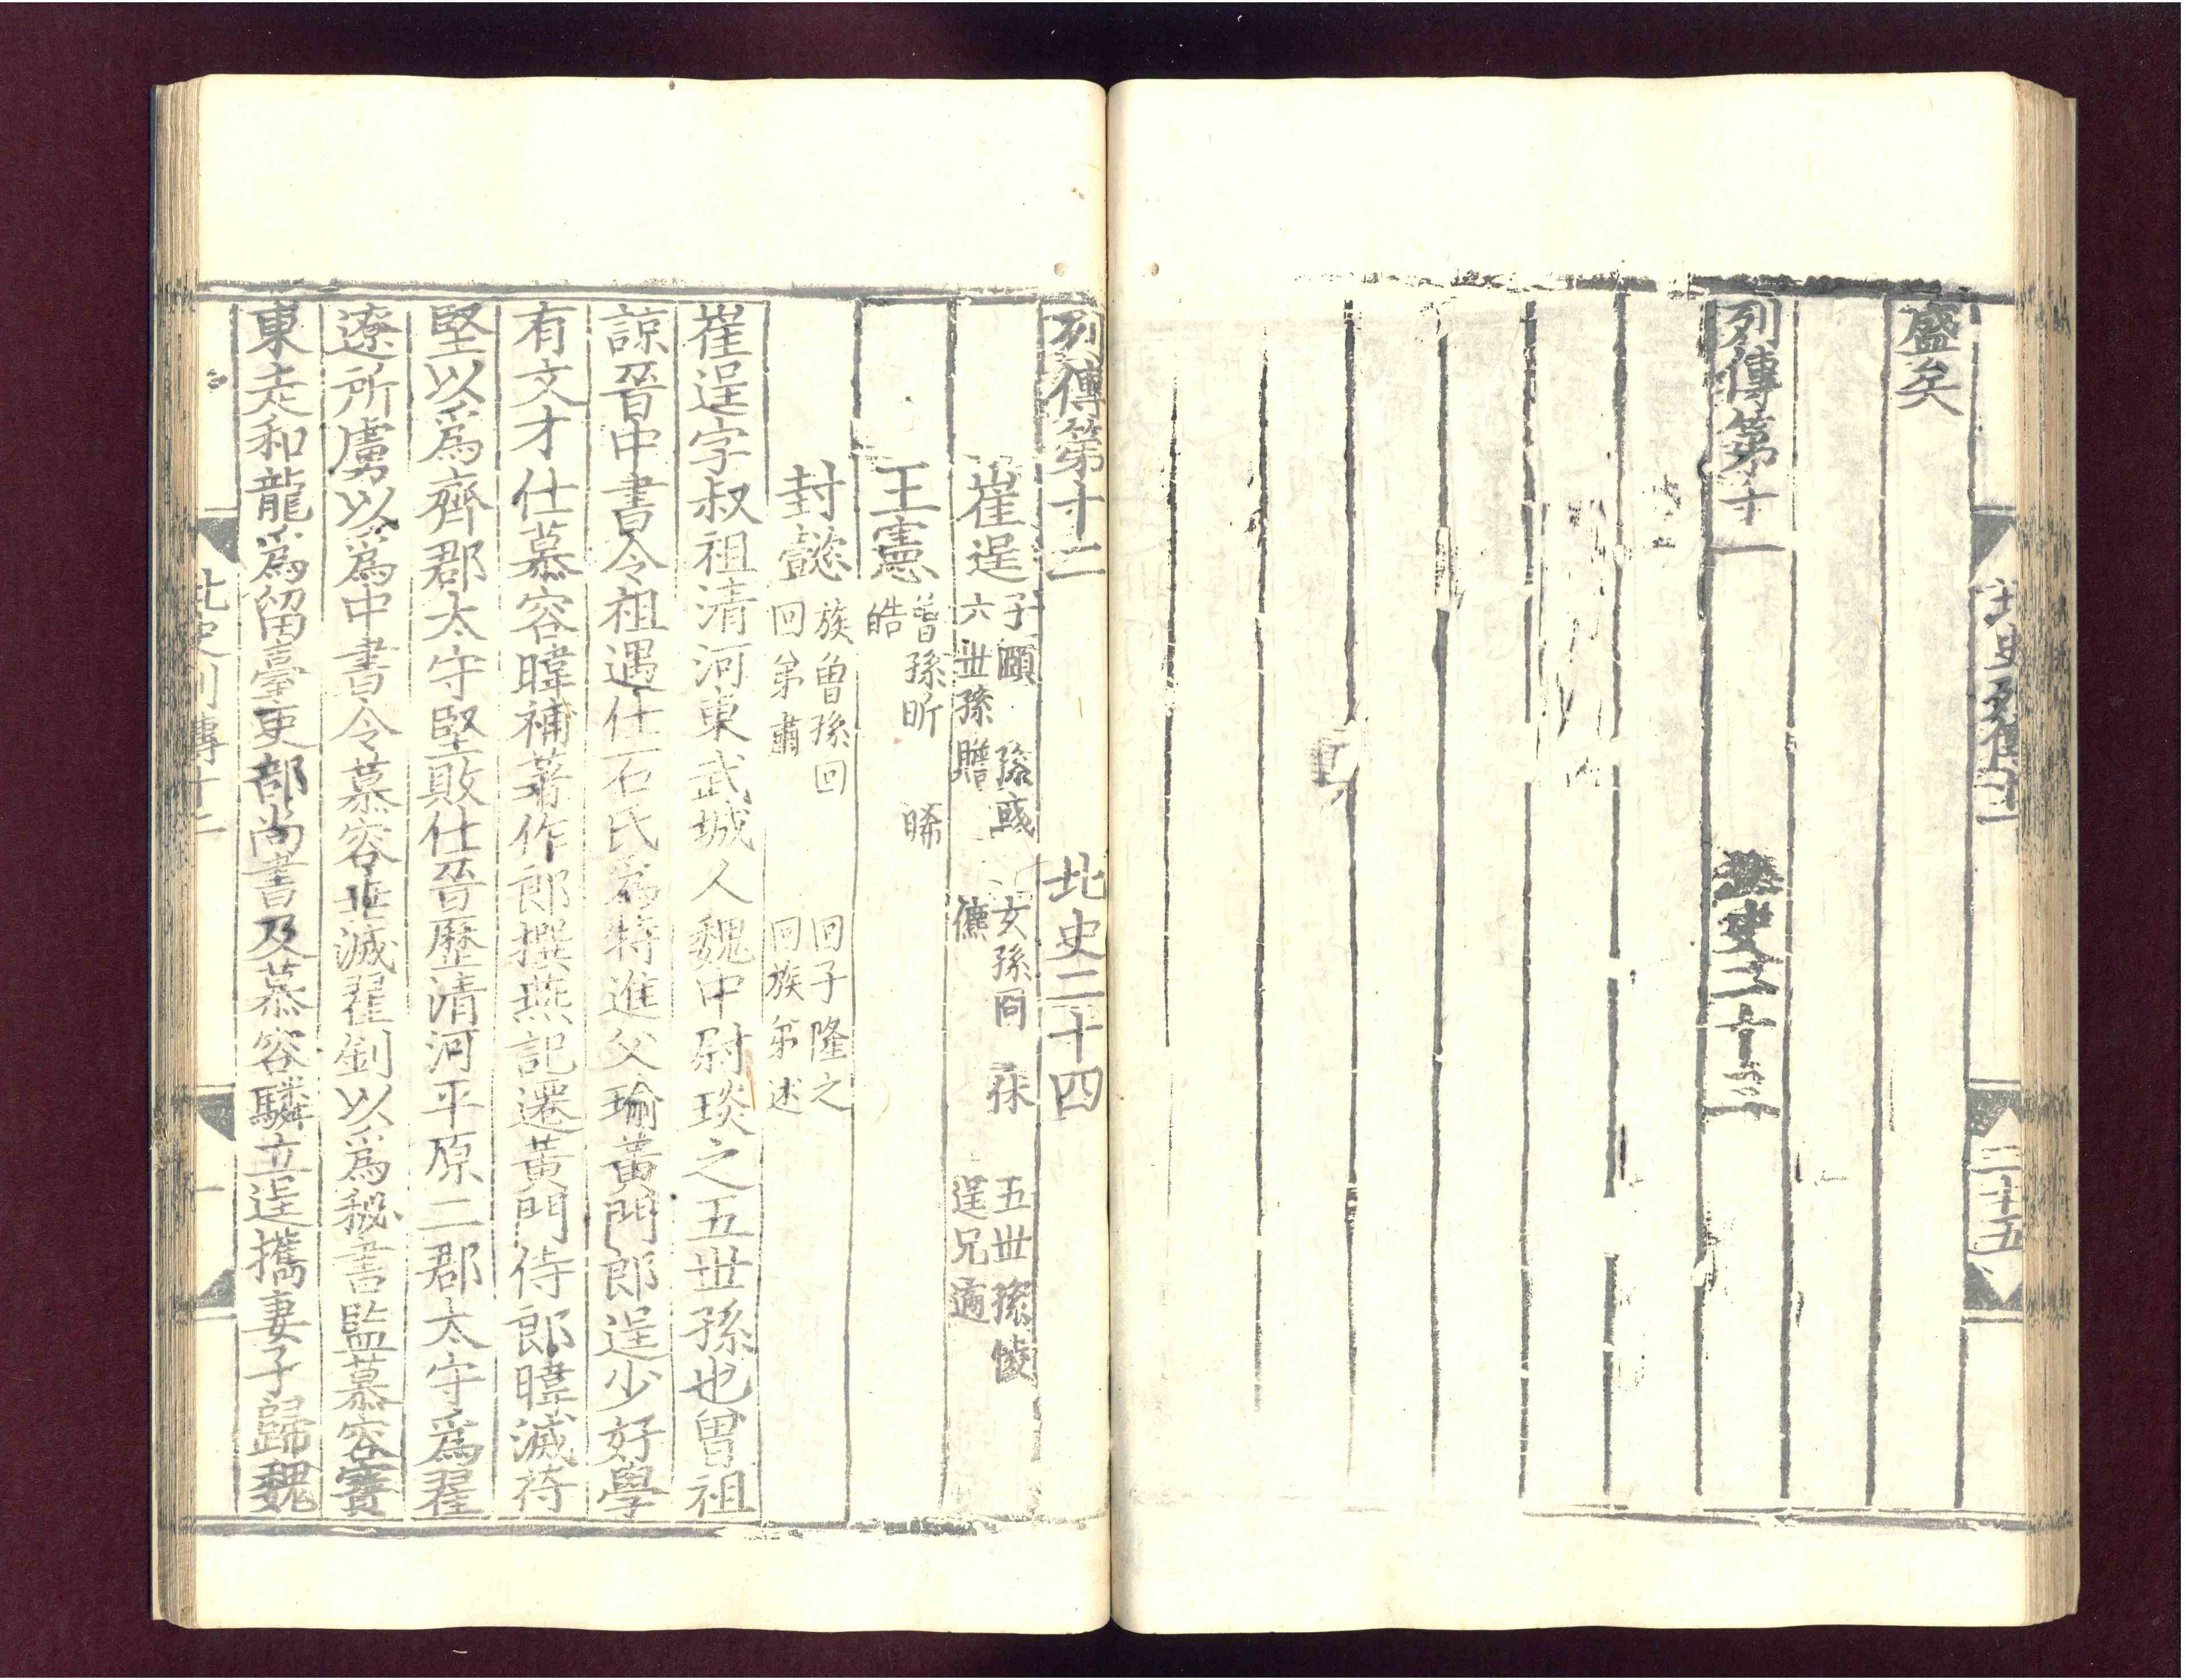 北史列傳十一
二十五
盛矣
列傳第十一 北史二十三
列傳第十二 北史二十四
崔逞 子頤 孫彧 玄孫冏 休 五世孫㥄
六世孫贍 儦 逞兄遹
王憲 曾孫昕 晞
皓
封懿 族曾孫回 回子隆之
回弟肅 回族弟述
崔逞字叔祖清河東武城人魏中尉琰之五世孫也曾祖
諒晉中書令祖遇仕石氏爲特進父瑜黃門郎逞少好學
有文才仕慕容暐補著作郎撰燕記遷黃門侍郎暐滅苻
堅以爲齊郡太守堅敗仕晉歷清河平原二郡太守爲翟
遼所虜以爲中書令慕容垂滅翟釗以爲秘書監慕容寶
東走和龍爲留臺吏部尚書及慕容驎立逞攜妻子歸魏
北史列傳十二
一